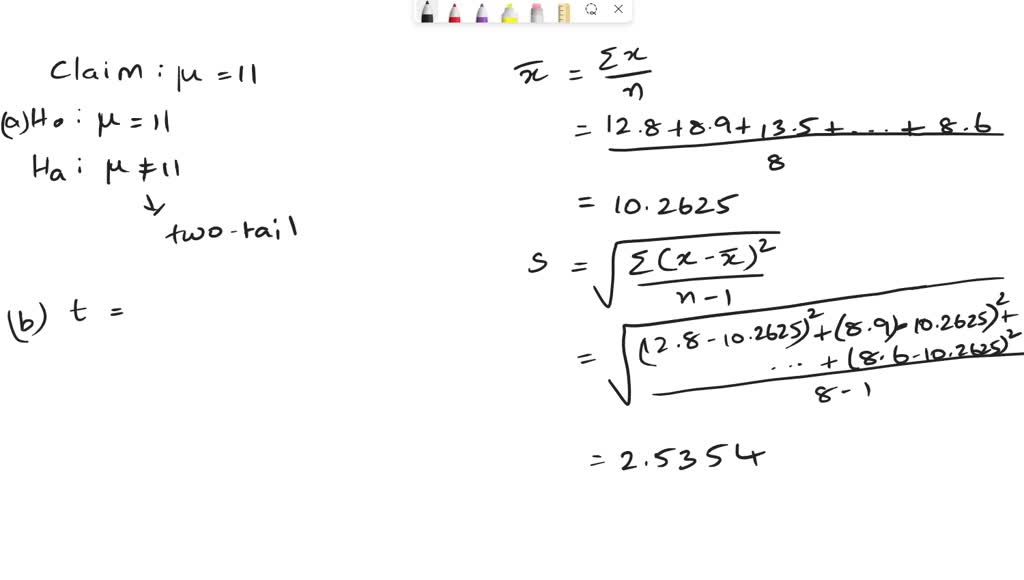 Claim : μ = 11
(a) H₀ : μ = 11
Ha : μ ≠ 11
↓
two-tail
(b) t =
x̄ = Σx / n
= 12.8 + 8.9 + 13.5 + ... + 8.6 / 8
= 10.2625
S = √(Σ(x - x̄)² / n - 1)
= √((12.8 - 10.2625)² + (8.9) - 10.2625)² +
... + (8.6 - 10.2625)²
8 - 1
= 2.5354